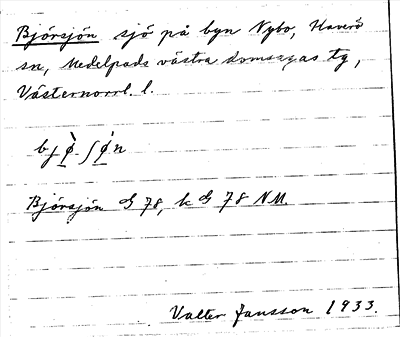 Björsjön sjö på byn Nybo, Haverö
sn, Medelpads västra domsagas tg,
Västernorrl. l.
bjø̀ʃø̀n
Björsjön G 78, k G 78 NM.
Valter Jansson 1933.